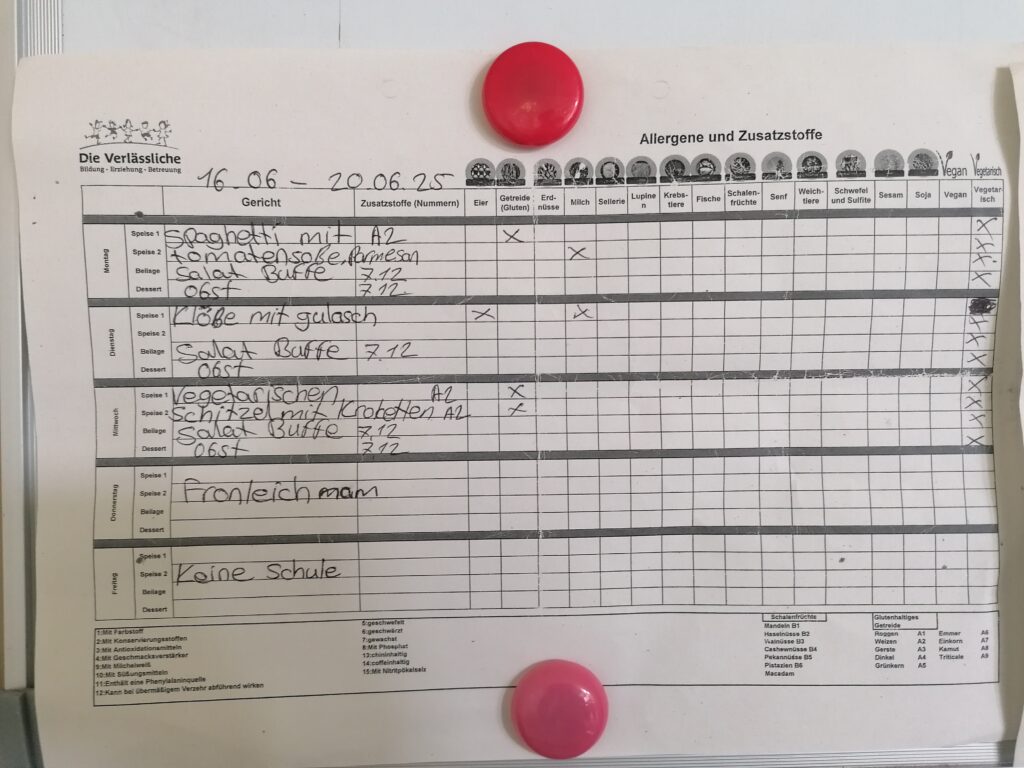 Die Verlässliche
Bildung - Erziehung - Betreuung
Allergene und Zusatzstoffe
16.06 - 20.06.25
Vegan Vegetarisch
Gericht Zusatzstoffe (Nummern) Eier Getreide (Gluten) Erd-nüsse Milch Sellerie Lupinen Krebs-tiere Fische Schalen-früchte Senf Weich-tiere Schwefel und Sulfite Sesam Soja Vegan Vegetar-isch
Montag
Speise 1 Spaghetti mit A2 X X
Speise 2 tomatensoße, Parmesan X X
Beilage Salat Buffe 7.12 X
Dessert Obst 7.12
Dienstag
Speise 1 Klöße mit gulasch X X
Speise 2 X
Beilage Salat Buffe 7.12 X
Dessert Obst X
Mittwoch
Speise 1 Vegetarischen A2 X X
Speise 2 Schitzel mit Krohetten A2 X X
Beilage Salat Buffe 7.12 X
Dessert Obst 7.12 X
Donnerstag
Speise 1
Speise 2 Fronleichmam
Beilage
Dessert
Freitag
Speise 1
Speise 2 Keine Schule
Beilage
Dessert
1:Mit Farbstoff
2:Mit Konservierungsstoffen
3:Mit Antioxidationsmitteln
4:Mit Geschmacksverstärker
9:Mit Milcheiweiß
10:Mit Süßungsmitteln
11:Enthält eine Phenylalaninquelle
12:Kann bei übermäßigem Verzehr abführend wirken
5:geschwefelt
6:geschwärzt
7:gewachst
8:Mit Phosphat
13:chininhaltig
14:coffeinhaltig
15:Mit Nitritpökelsalz
Schalenfrüchte
Mandeln B1
Haselnüsse B2
Walnüsse B3
Cashewnüsse B4
Pekannüsse B5
Pistazien B6
Macadam
Glutenhaltiges Getreide
Roggen A1 Emmer A6
Weizen A2 Einkorn A7
Gerste A3 Kamut A8
Dinkel A4 Triticale A9
Grünkern A5